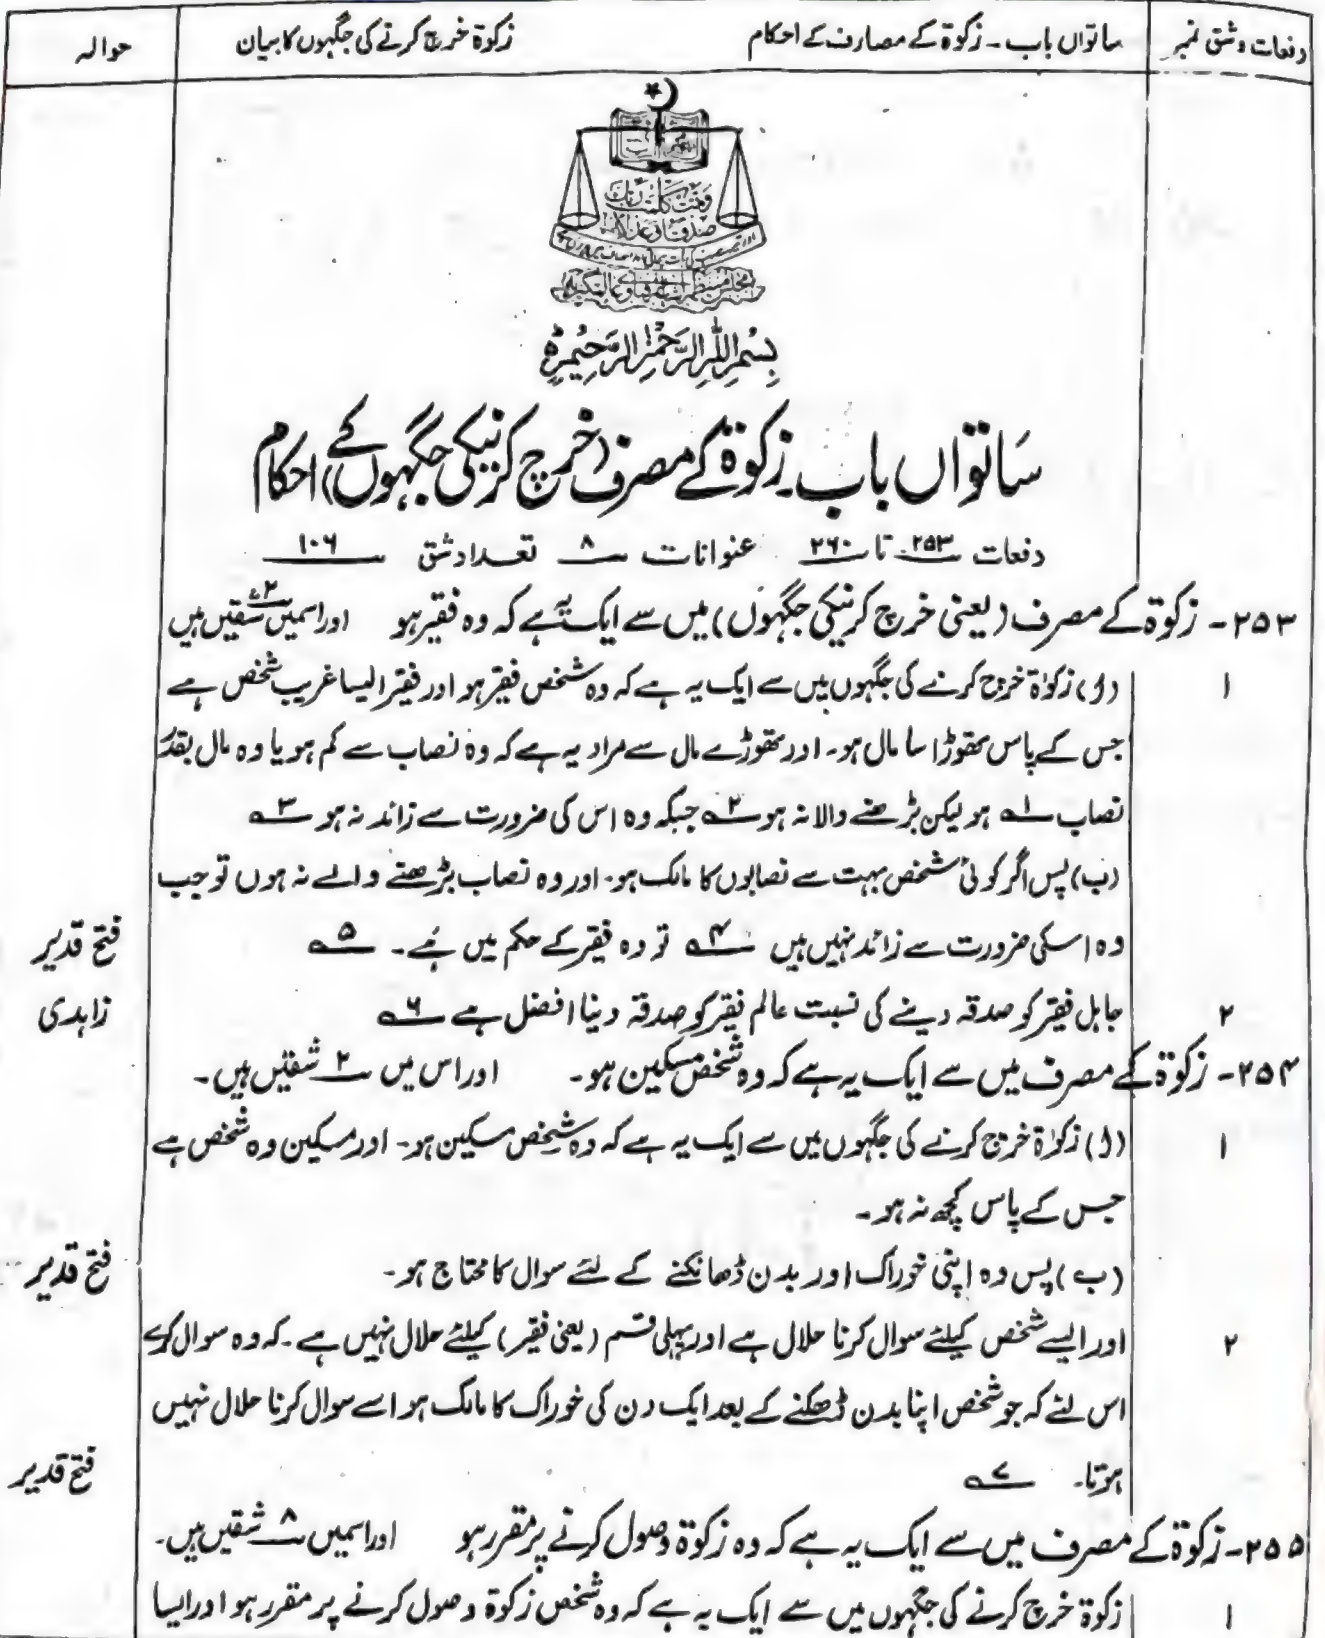 دفعات و شق نمبر ساتواں باب ۔ زکوٰۃ کے مصارف کے احکام زکوٰۃ خرچ کرنے کی جگہوں کا بیان حوالہ
وتمت کلمت ربک
صدقا وعدلا
بِسْمِ اللّٰہِ الرَّحْمٰنِ الرَّحِیْمِ
سَاتواں باب ۔ زکوٰۃ کے مصرف (خرچ کرنیکی جگہوں کے) احکام
دفعات ۲۵۳ تا ۲۶۰ عنوانات ۸ تعداد شق ۱۰۶
۲۵۳ - زکوٰۃ کے مصرف (یعنی خرچ کرنیکی جگہوں) میں سے ایک یہ ہے کہ وہ فقیر ہو اور اسمیں ۲ شقیں ہیں
۱ (ا) زکوٰۃ خرچ کرنے کی جگہوں میں سے ایک یہ ہے کہ وہ شخص فقیر ہو اور فقیر ایسا غریب شخص ہے
جس کے پاس تھوڑا سا مال ہو۔ اور تھوڑے مال سے مراد یہ ہے کہ وہ نصاب سے کم ہو یا وہ مال بقدر
نصاب ۱؎ ہو لیکن بڑھنے والا نہ ہو ۲؎ جبکہ وہ اس کی ضرورت سے زائد نہ ہو ۳؎
(ب) پس اگر کوئی شخص بہت سے نصابوں کا مالک ہو۔ اور وہ نصاب بڑھنے والے نہ ہوں تو جب
وہ اسکی ضرورت سے زائد نہیں ہیں ۴؎ تو وہ فقیر کے حکم میں ہے۔ ۵؎ فتح قدیر
۲ جاہل فقیر کو صدقہ دینے کی نسبت عالم فقیر کو صدقہ دینا افضل ہے ۶؎ زاہدی
۲۵۴ - زکوٰۃ کے مصرف میں سے ایک یہ ہے کہ وہ شخص مسکین ہو۔ اور اس میں ۲ شقیں ہیں۔
۱ (ا) زکوٰۃ خرچ کرنے کی جگہوں میں سے ایک یہ ہے کہ وہ شخص مسکین ہو۔ اور مسکین وہ شخص ہے
جس کے پاس کچھ نہ ہو۔
(ب) پس وہ اپنی خوراک اور بدن ڈھانکنے کے لئے سوال کا محتاج ہو۔ فتح قدیر
۲ اور ایسے شخص کیلئے سوال کرنا حلال ہے اور پہلی قسم (یعنی فقیر) کیلئے حلال نہیں ہے ۔ کہ وہ سوال کرے
اس لئے کہ جو شخص اپنا بدن ڈھکنے کے بعد ایک دن کی خوراک کا مالک ہو اسے سوال کرنا حلال نہیں
ہوتا۔ ۷؎ فتح قدیر
۲۵۵ - زکوٰۃ کے مصرف میں سے ایک یہ ہے کہ وہ زکوٰۃ وصول کرنے پر مقرر ہو اور اسمیں ۸ شقیں ہیں۔
۱ زکوٰۃ خرچ کرنے کی جگہوں میں سے ایک یہ ہے کہ وہ شخص زکوٰۃ وصول کرنے پر مقرر ہو اور ایسا